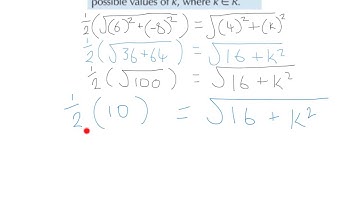 possible values of k, where k ∈ ℝ.
½(√(6)²+(-8)²) = √(4)²+(k)²
½(√36+64) = √16+k²
½(√100) = √16+k²
½(10) = √16+k²